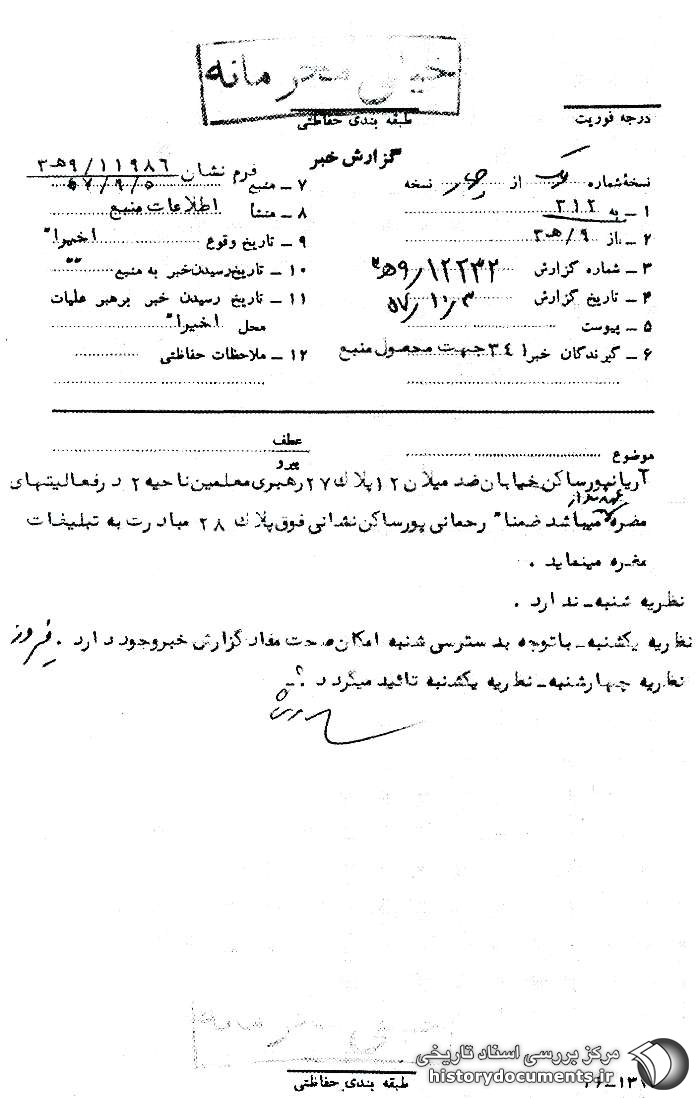 خیلی محرمانه
طبقه بندی حفاظتی
درجه فوریت
گزارش خبر
نسخهٔ شماره یک از چهار نسخه
۱ ـ به ۳۱۲
۲ ـ از ۹/هـ۳
۳ ـ شماره گزارش ۹/۱۲۲۳۲هـ۳
۴ ـ تاریخ گزارش ۵۷/۱۰/۳
۵ ـ پیوست
۶ ـ گیرندگان خبر ۳۴۱ جهت محصول منبع
فرم نشان ۹/۱۱۹۸۶هـ۳
۷ ـ منبع ۵۷/۹/۵
۸ ـ منشأ اطلاعات منبع
۹ ـ تاریخ وقوع اخیرا"
۱۰ ـ تاریخ رسیدن خبر به منبع " "
۱۱ ـ تاریخ رسیدن خبر برهبر عملیات
محل اخیرا"
۱۲ ـ ملاحظات حفاظتی
موضوع
عطف
پیرو
آریانپور ساکن خیابان ضد میلان ۱۲ پلاک ۲۷ رهبری معلمین ناحیه ۲ در فعالیتهای
مضره میباشد ضمنا" رحمانی پور ساکن نشانی فوق پلاک ۲۸ مبادرت به تبلیغات
مضره مینماید .
نظریه شنبه ـ ندارد .
نظریه یکشنبه ـ باتوجه بدسترسی شنبه امکان صحت مفاد گزارش خبر وجود دارد . فیروز
نظریه چهارشنبه ـ نظریه یکشنبه تائید میگردد .
طبقه بندی حفاظتی
مرکز بررسی اسناد تاریخی
historydocuments.ir